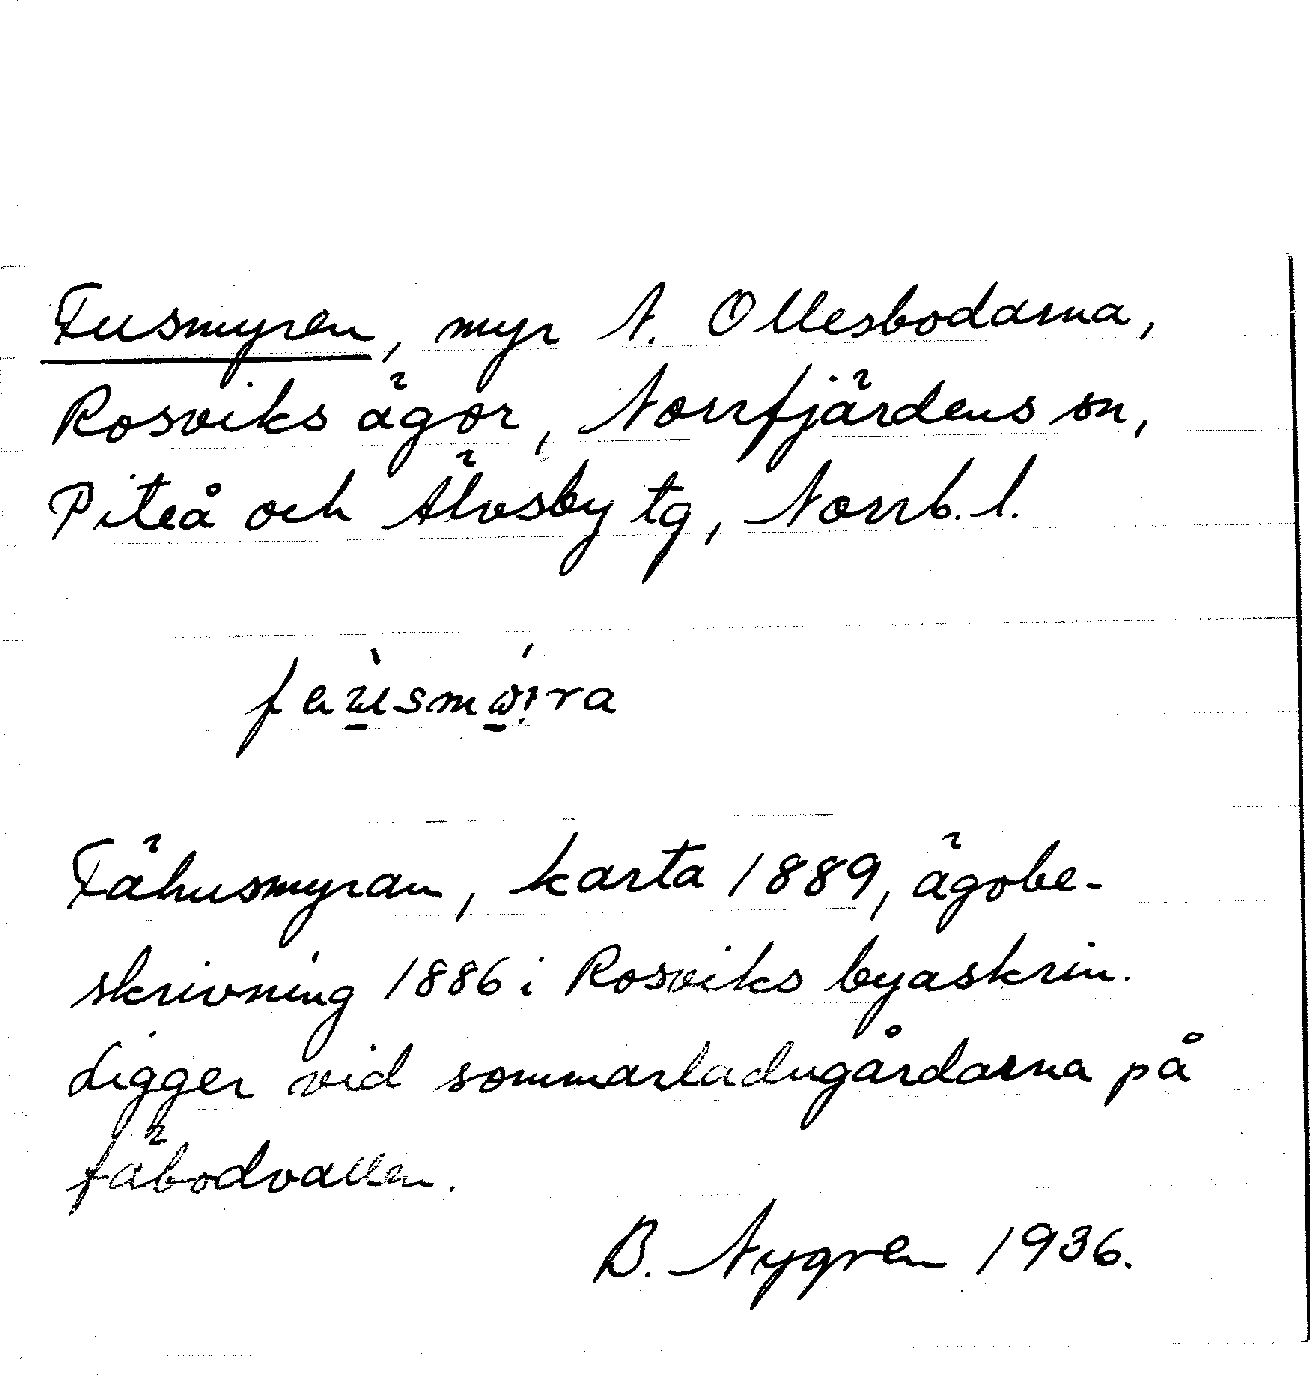 Fusmyren, myr N. Ollesbodarna,
Rosviks ägor, Norrfjärdens sn,
Piteå och Älvsby tg, Norrb. l.
Fähusmyran, karta 1889, ägobe-
skrivning 1886 i Rosviks byaskrin.
Ligger vid sommarladugårdarna på
fäbodvallen.
B. Nygren 1936.